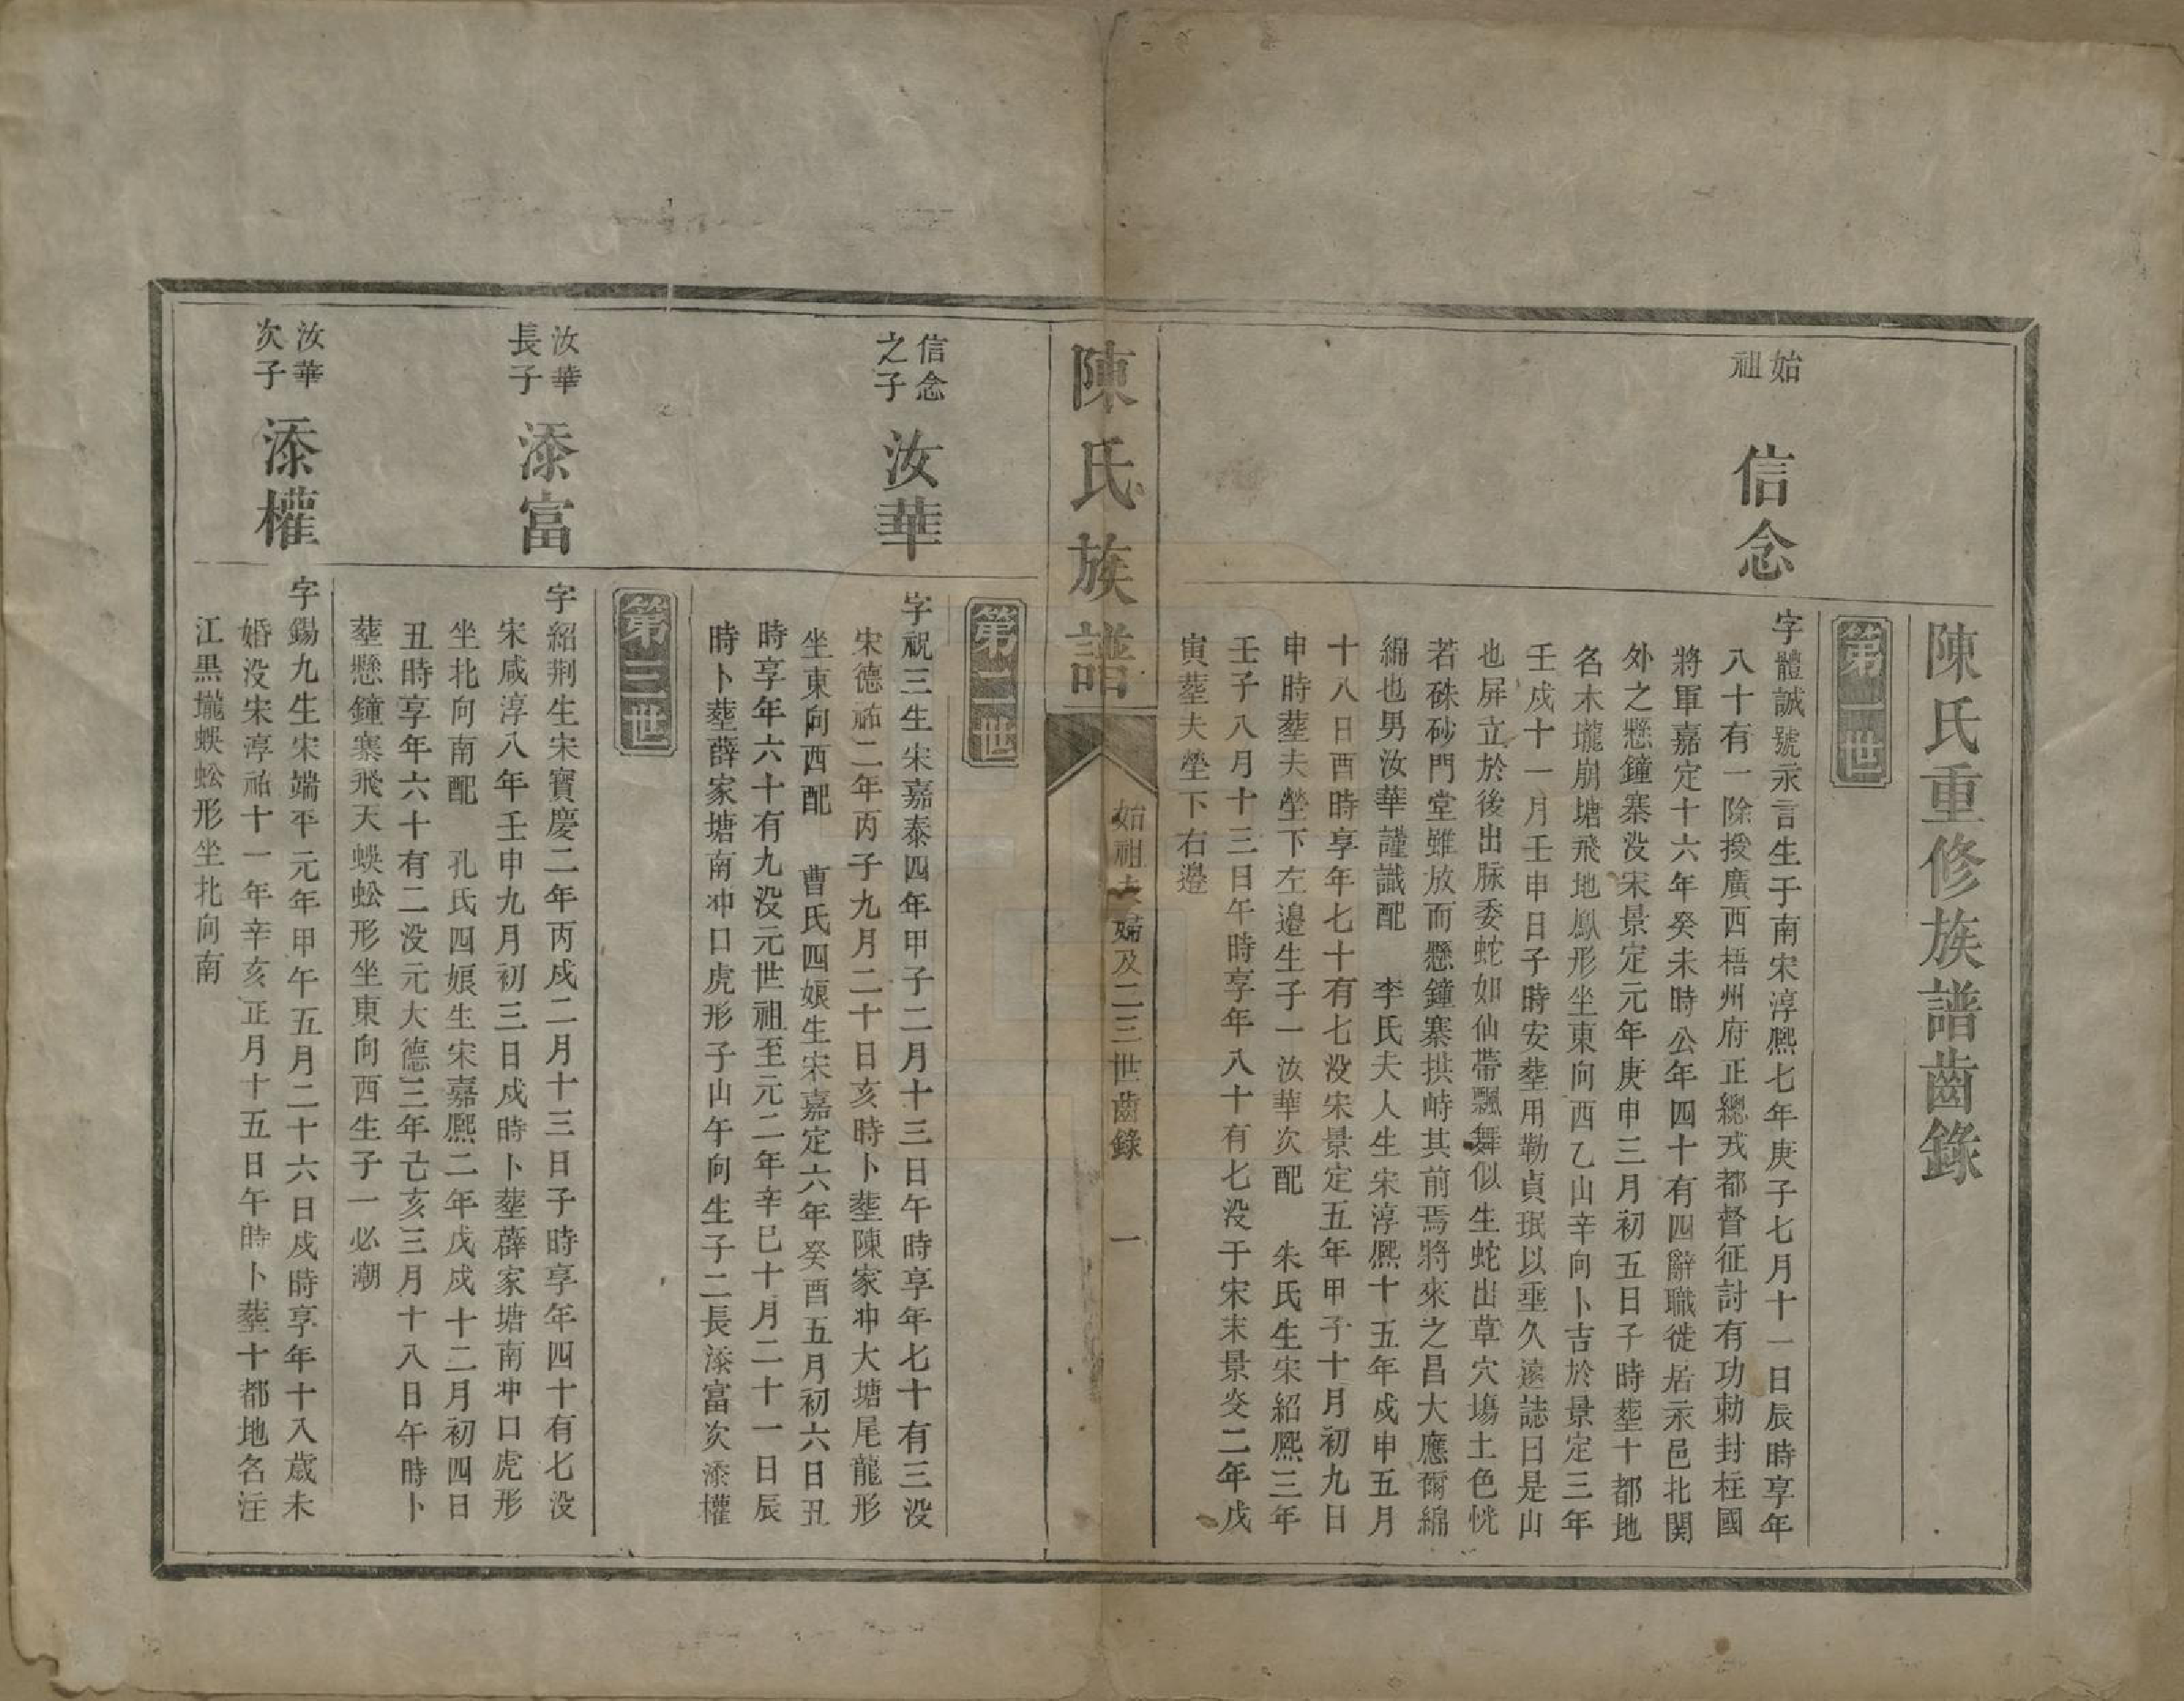 陳氏重修族譜齒錄
第一世
始祖
信念
字體誠號永言生于南宋淳熙七年庚子七月十一日辰時享年
八十有一除授廣西梧州府正總戎都督征討有功勅封柱國
將軍嘉定十六年癸未時公年四十有四辭職徙居永邑北関
外之懸鐘寨没宋景定元年庚申三月初五日子時塟十都地
名木壠崩塘飛地鳳形坐東向西乙山辛向卜吉於景定三年
壬戍十一月壬申日子時安塟用勒貞珉以垂久遠誌曰是山
也屏立於後出脉委蛇如仙帶飄舞似生蛇出草穴塲土色恍
若硃砂門堂雖放而懸鐘寨拱峙其前焉將來之昌大應爾綿
綿也男汝華謹識配 李氏夫人生宋淳熙十五年戍申五月
十八日酉時享年七十有七没宋景定五年甲子十月初九日
申時塟夫塋下左邊生子一汝華次配 朱氏生宋紹熙三年
壬子八月十三日午時享年八十有七没于宋末景炎二年戊
寅塟夫塋下右邊
陳氏族譜
始祖夫婦及二三世齒錄 一
第二世
信念
之子
汝華
字祝三生宋嘉泰四年甲子二月十三日午時享年七十有三没
宋德祐二年丙子九月二十日亥時卜塟陳家冲大塘尾龍形
坐東向西配 曹氏四娘生宋嘉定六年癸酉五月初六日丑
時享年六十有九没元世祖至元二年辛巳十月二十一日辰
時卜塟薛家塘南冲口虎形子山午向生子二長添富次添權
第三世
汝華
長子
添富
字紹荆生宋寳慶二年丙戍二月十三日子時享年四十有七没
宋咸淳八年壬申九月初三日戍時卜塟薛家塘南冲口虎形
坐北向南配 孔氏四娘生宋嘉熙二年戊戍十二月初四日
丑時享年六十有二没元大德三年己亥三月十八日午時卜
塟懸鐘寨飛天蜈蚣形坐東向西生子一必潮
汝華
次子
添權
字鍚九生宋端平元年甲午五月二十六日戍時享年十八歲未
婚没宋淳祐十一年辛亥正月十五日午時卜塟十都地名注
江黒壠蜈蚣形坐北向南